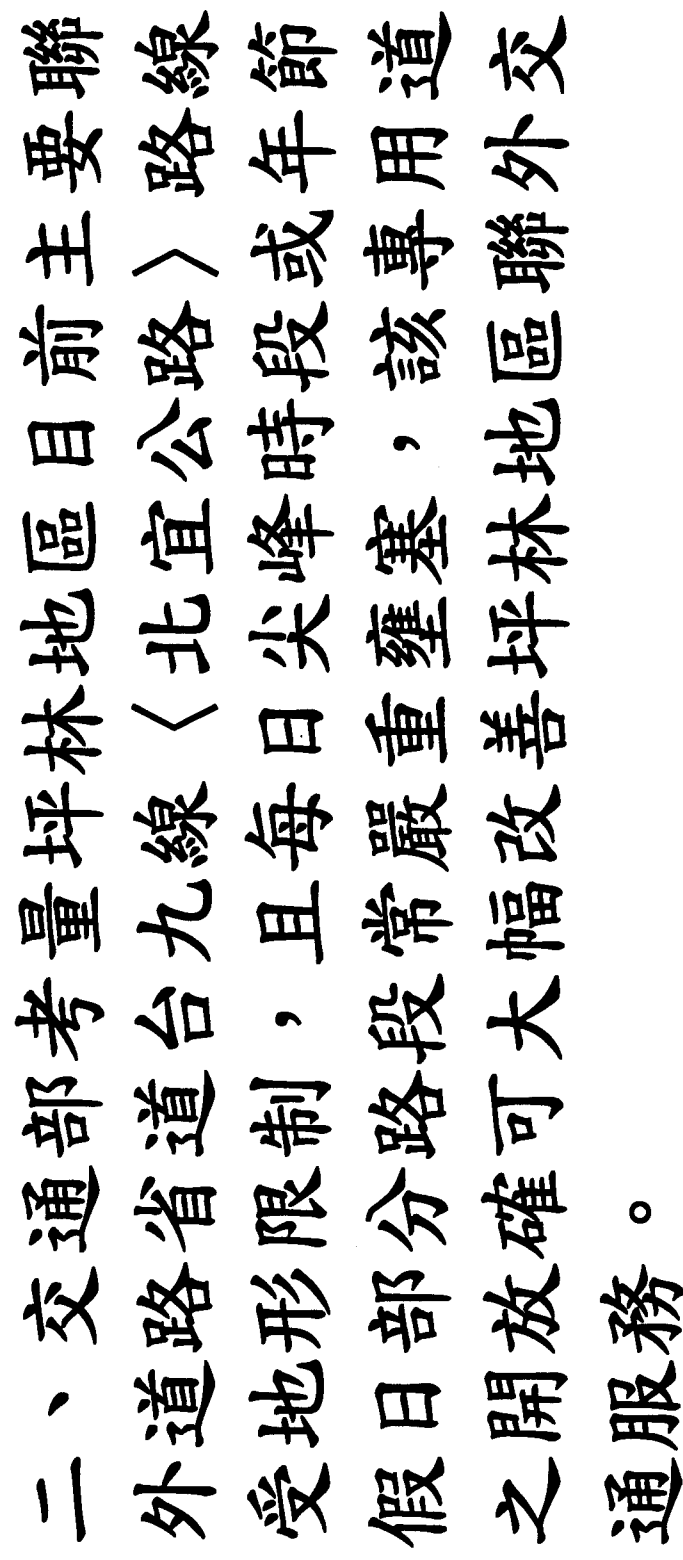 二、交通部考量坪林地區目前主要聯
外道路省道台九線〈北宜公路〉路線
受地形限制，且每日尖峰時段或年節
假日部分路段常嚴重壅塞，該專用道
之開放確可大幅改善坪林地區聯外交
通服務。